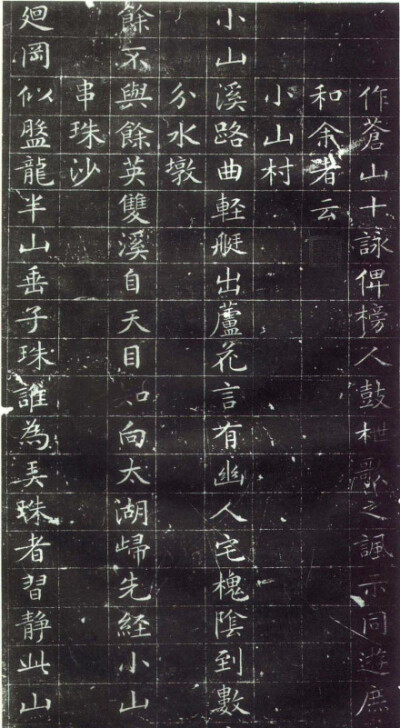 作蒼山十詠俾榜人鼓枻歌之諷示同遊庶
和余者云
小山村
小山溪路曲軽艇出蘆花言有幽人宅槐陰到數
分水墩
餘不與餘英雙溪自天目向太湖歸先經小山
串珠沙
廻岡似盤龍半山垂子珠誰為弄珠者習靜此山